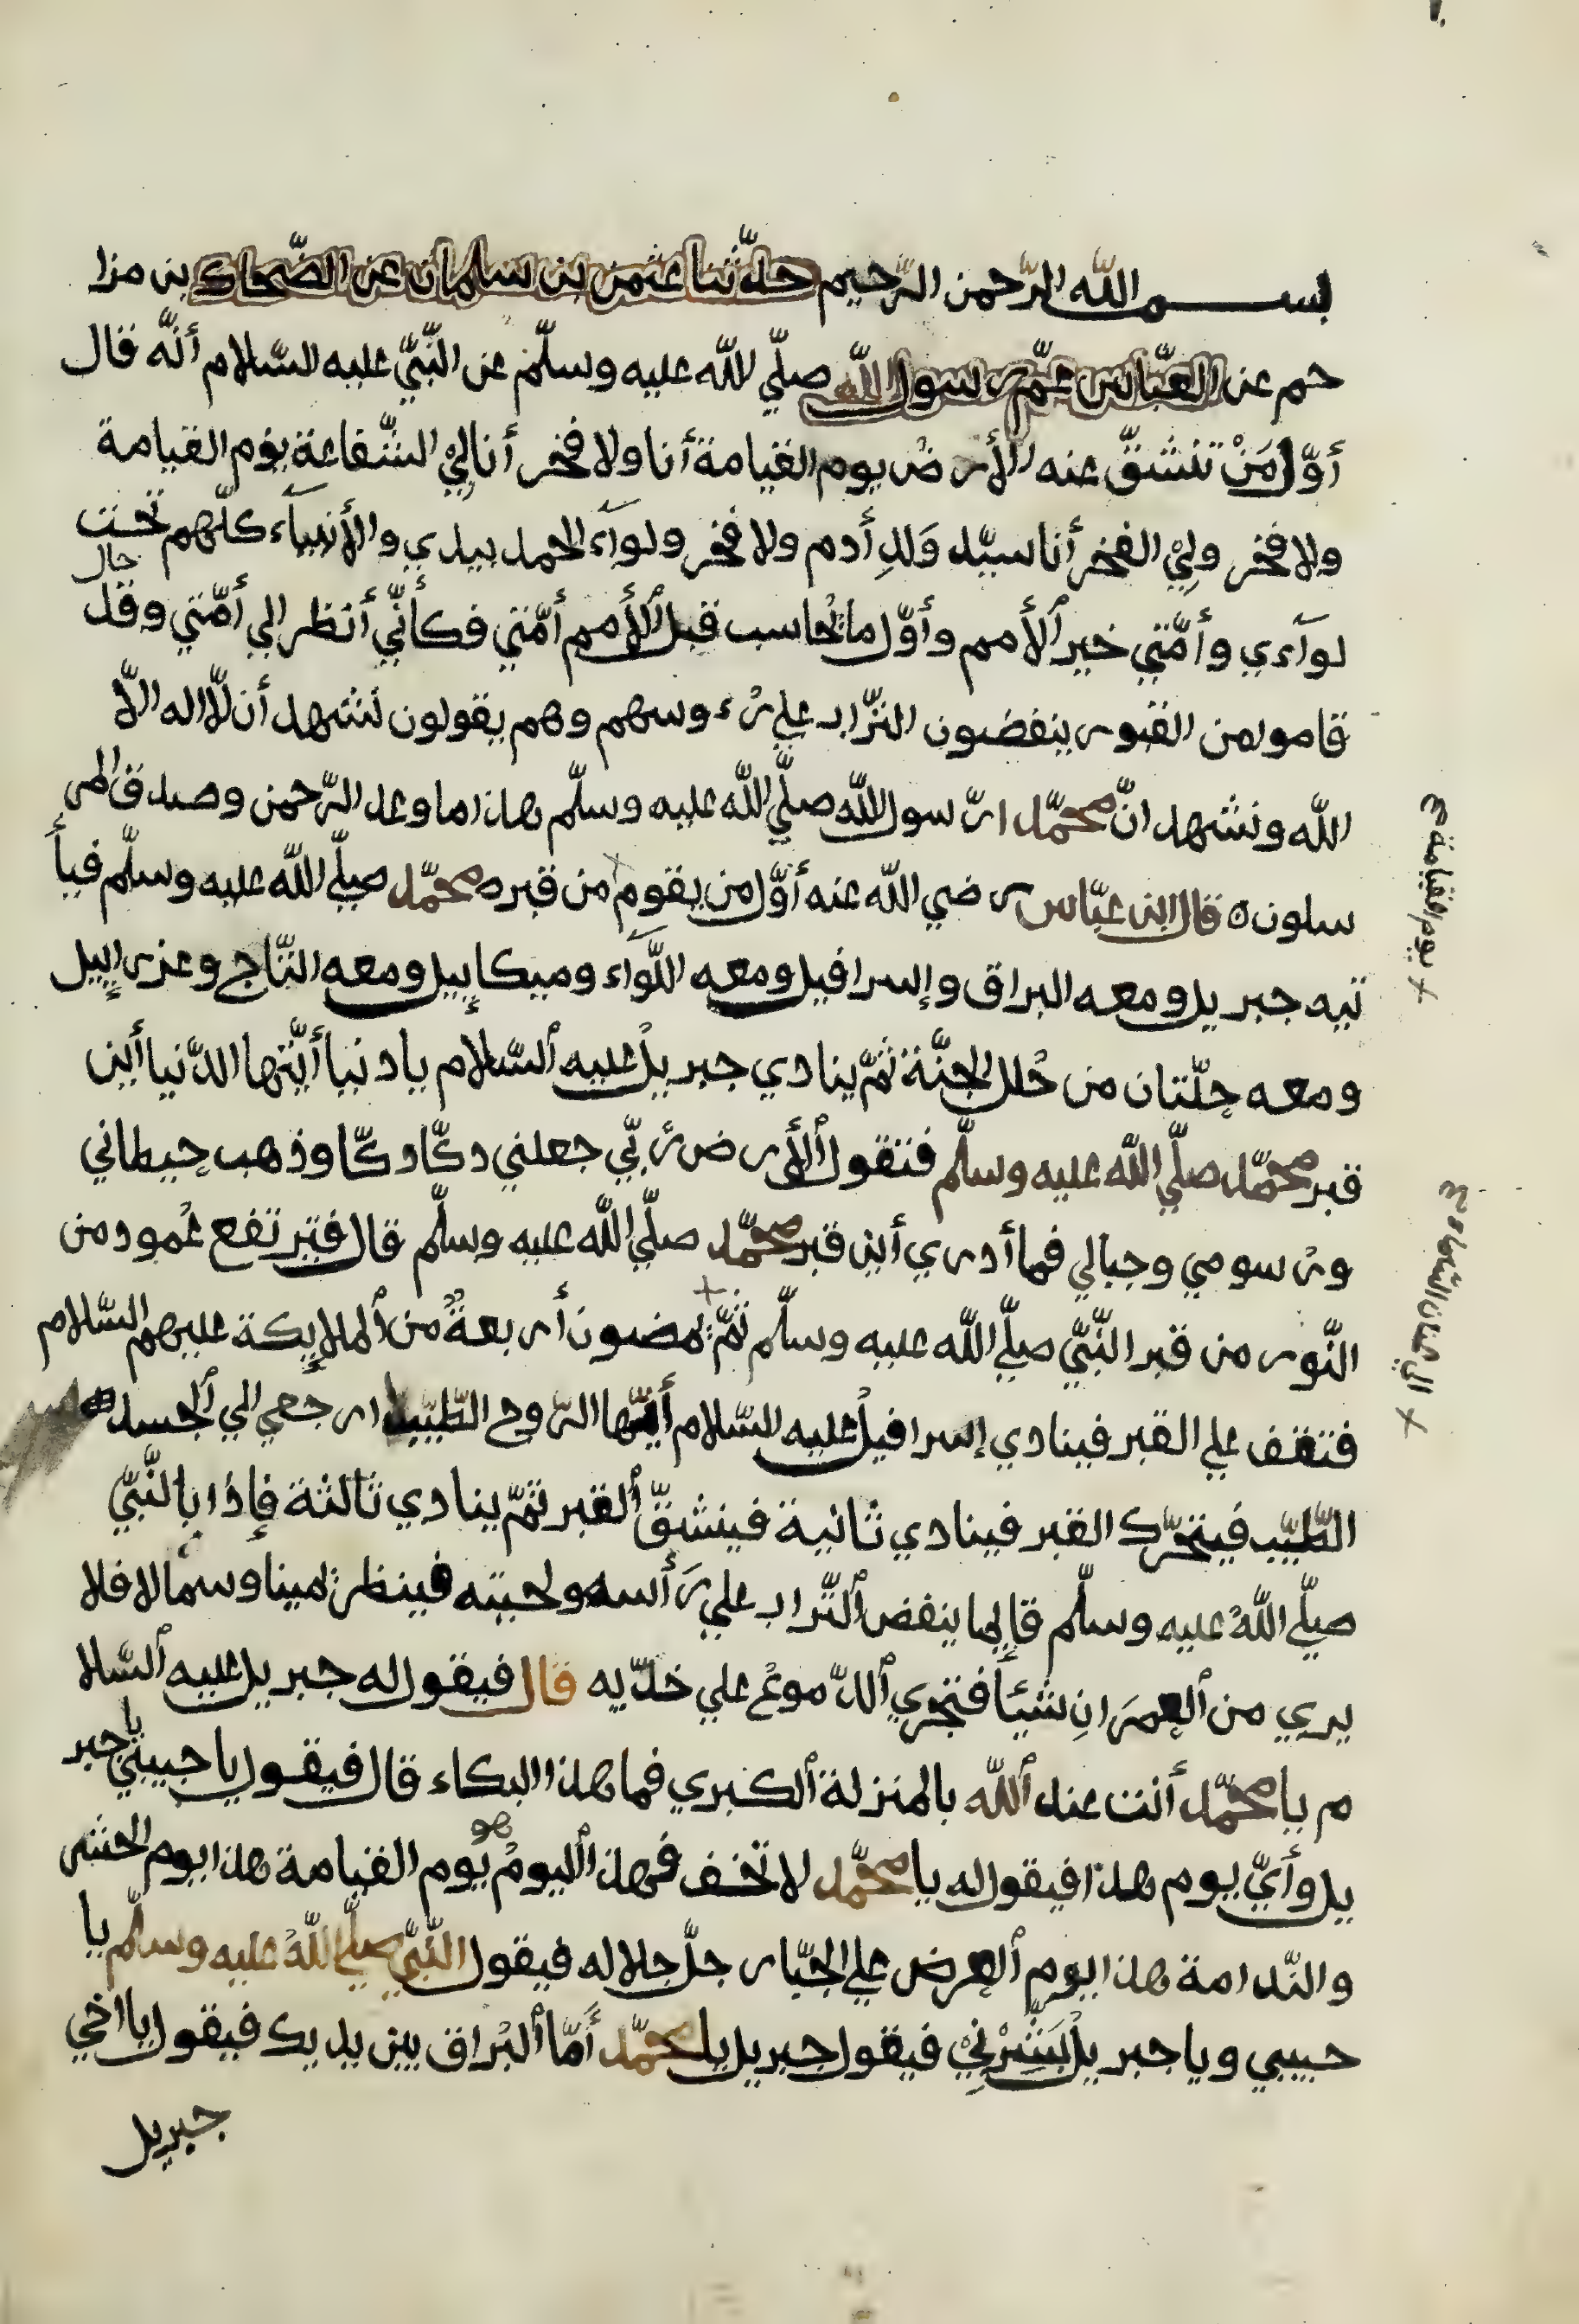 بســـــم الله الرّحمن الرّحيم حدّثنا عثمن بن سلمان عن الضّحاك بن مزا
حم عن العبّاس عمّ رسول الله صلّي الله عليه وسلّم عن النّبيّ عليه السّلام أنّه قال
أوّل مَنْ تنشقّ عنه الأرضُ يوم القيامة أنا ولا فخر أنا لِيْ الشّفاعة يوم القيامة
ولا فخر ولِيْ الفخر أنا سيّد وَلدِ أدم ولا فخر ولوآء الحمد بيدي والأنبيآء كلّهم تحت
جال
لوآءي وأمّتي خير الأمم وأوّل ما تُحاسب قبل الأمم أمّتي فكأنّي أنظر الي أمّتي وقد
قاموا من القبور ينفضون التّراب علي رءوسهم وهم يقولون نشهد أن لّا اله الّا
الله ونشهد انّ محمّدا رّسول الله صلّي الله عليه وسلّم هذا ما وعد الرّحمن وصدق المر
سلون ه قال ابن عبّاس رضي الله عنه أوّل من يقوم من قبره محمّد صلّي الله عليه وسلّم فيأ
تيه جبريل ومعه البراق وإسرافيل ومعه اللّواء وميكاءيل ومعه التّاج وعزراءيل
ومعه حلّتان من حُلل الجنّة ثمّ ينادي جبريلُ عليه السّلام يا دنيا أيّتها الدّنيا أين
قبر محمّد صلّي الله عليه وسلّم فتقول الأرض ربّي جعلني دكّا دكّا وذهب حيطاني
ورسومي وجبالي فما أدري أين قبر محمّد صلّي الله عليه وسلّم قال فيرتفع عُمود من
النّور من قبر النّبيّ صلّي الله عليه وسلّم ثمّ يمضون أربعةٌ من الملاءيكة عليهم السّلام
فتقف علي القبر فينادي إسرافيلُ عليه السّلام أيّتها الرّوح الطّيّب ارجعي الي الجسد
الطّيّب فيتحرّك القبر فينادي ثانية فينشقّ القبر ثمّ ينادي ثالثة فإذا بالنّبيّ
صلّي اللهُ عليه وسلّم قايما ينفض التّراب علي رأسه ولحيته فينظر يمينا وسمالا فلا
يري من العمرَانِ شيئا فتجري الدّموعُ علي خدّيه قال فيقول له جبريل عليه السّلا
م يا محمّد أنت عند الله بالمنزلة الكبري فما هذا البكاء قال فيقول يا حبيبي يا جبر
يل وأيّ يوم هذا فيقول له يا محمّد لا تخف فهذا اليومُ يوم القيامة هذا يوم الحشر
هو
والنّدامة هذا يوم العرض علي الجبّار جلّ جلاله فيقول النّبيّ صلّي اللهُ عليه وسلّم يا
حبيبي ويا جبريلُ بَشِّرْنِيْ فيقول جبريل يا محمّد أمّا البُراق بين يديك فيقول يا اخي
جبريل
يوم القيامة